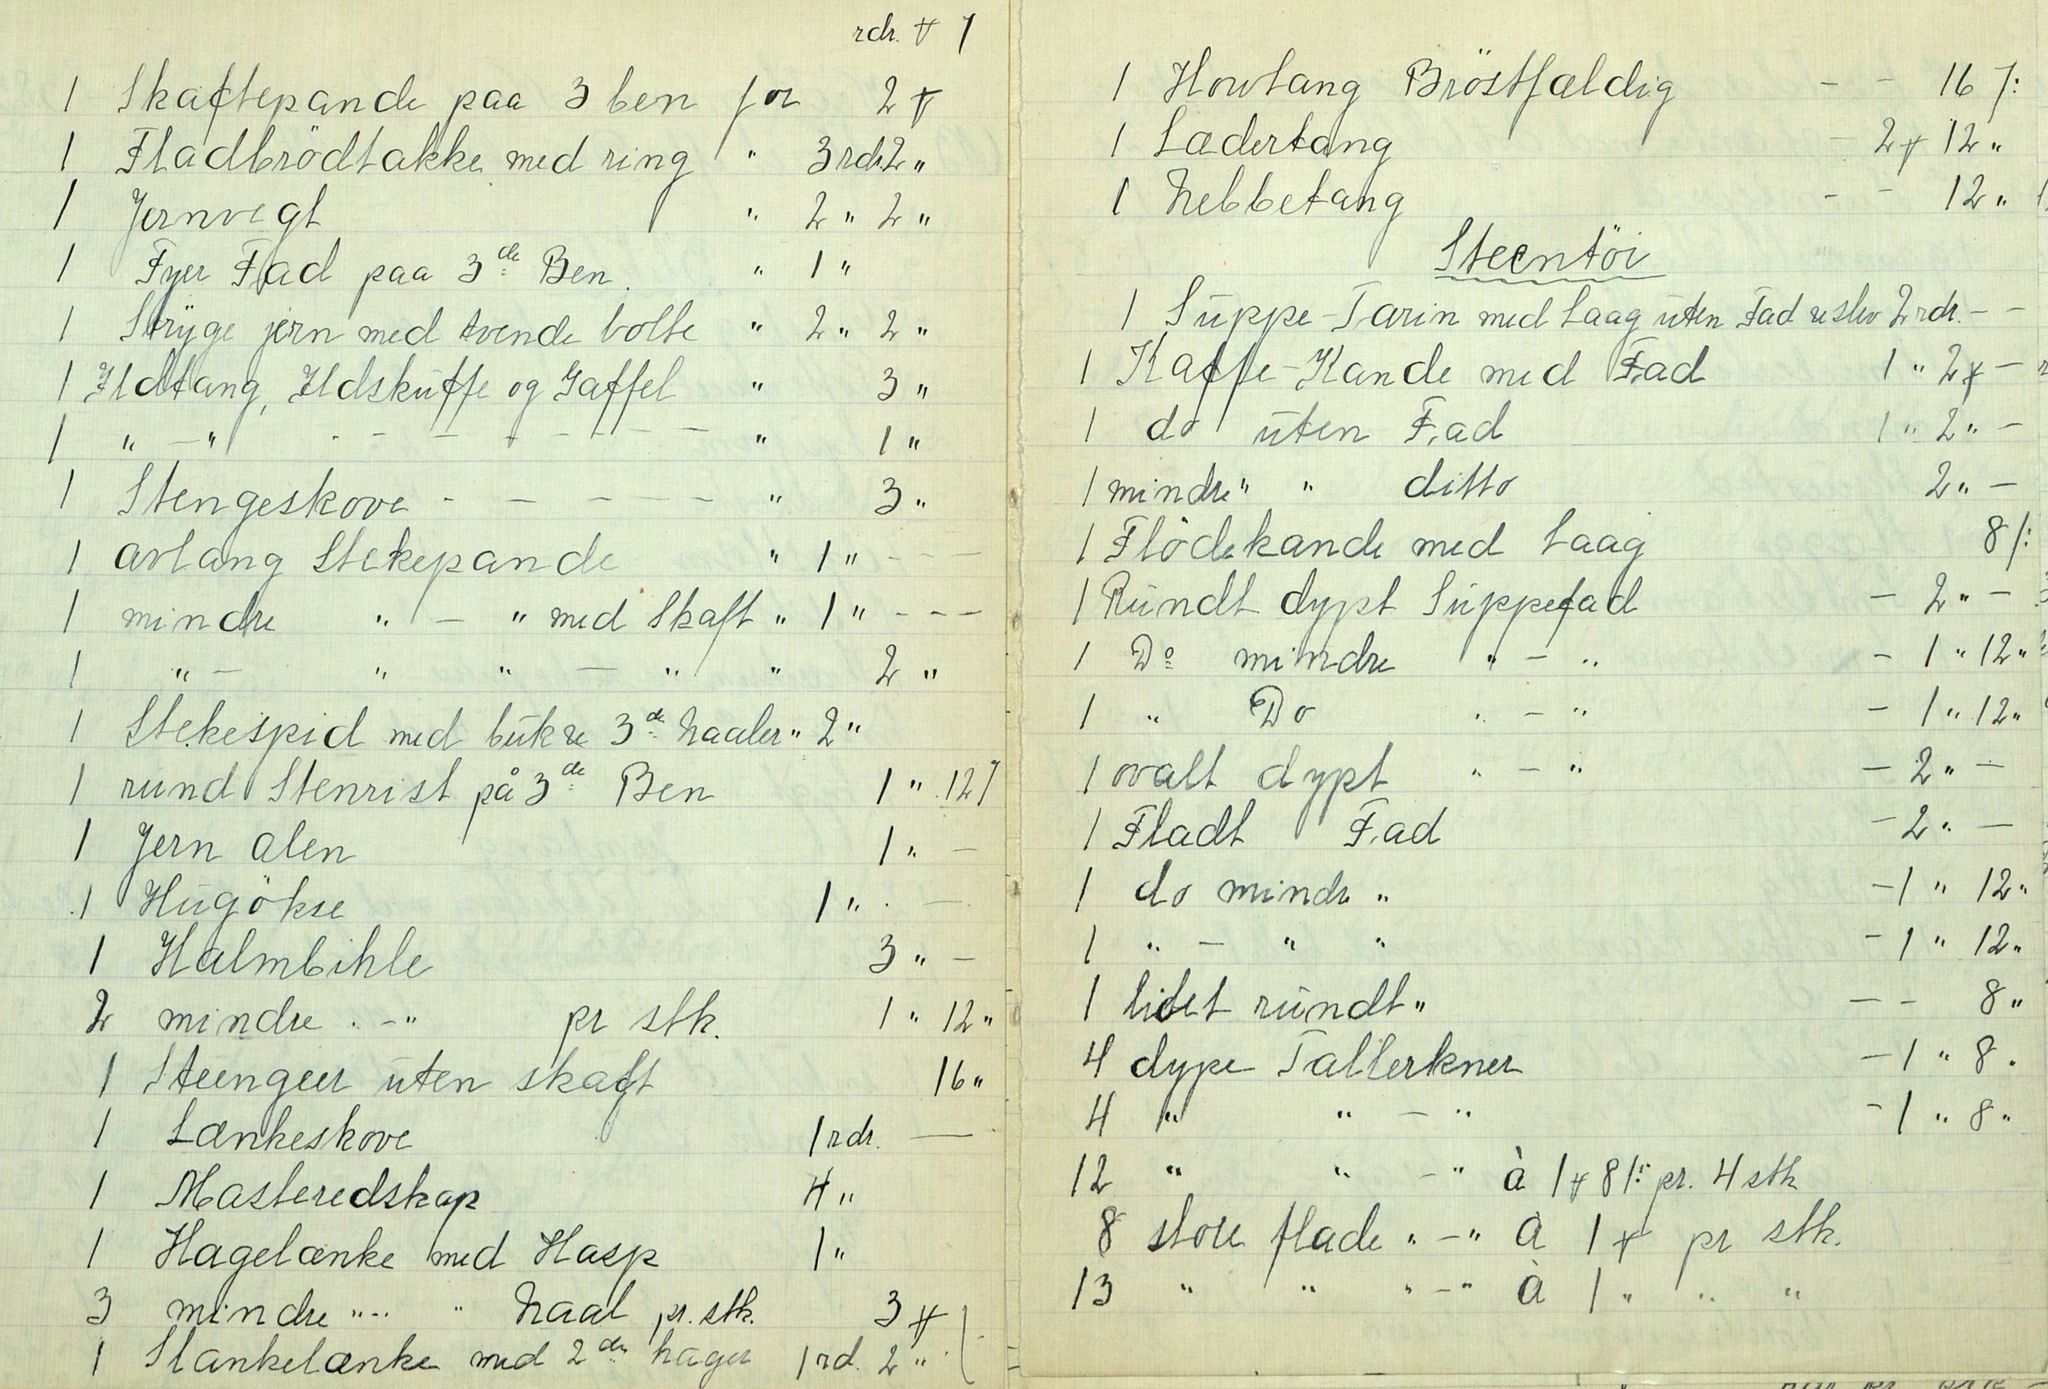 rdr. ₰ 7
1 Skaftepande paa 3 ben for 2 ₰
1 Fladbrödtakke med ring " 3 rdr. 2 "
1 Jernvegt " 2 " 2 "
1 Fyer Fad paa 3de Ben. " 1 "
1 Stryge jern med tvende bolte " 2 " 2 "
1 Ildtang, Ildskuffe og Gaffel " 3 "
1 " — " - - - - - - - - " 1 "
1 Stengeskove - - - - - " 3 "
1 avlang Stekepande " 1 " - - -
1 mindre " — " med Skaft " 1 " - - -
1 " — " " — " " 2 "
1 Stekespid med bukre 3de Naaler " 2 "
1 rund Stenrist på 3de Ben 1 " 12 7
1 Jern alen 1 " —
1 Hugökse 1 " - —
1 Halmbihle 3 " —
2 mindre " — " pr stk. 1 " 12 "
1 Steenguer uten skaft 16 "
1 Lænkeskove 1 rdr. —
1 Masteredskap 4 "
1 Hagelænke med Hasp 1 "
3 mindre " - " " Naal pr. stk. 3 ₰
1 Slankelænke med 2de hager 1 rd. 2 "
1 Hovtang Bröstfældig - - 16 7:
1 Lædertang - 2 ₰ 12 "
1 Nebbetang - - 12 "
Steentöi
1 Suppe-Tarin med Laag uten Fad 2 rdr. - -
1 Kaffe-Kande med Fad 1 " 2 ₰ —
1 do uten Fad 1 " 2 " —
1 mindre " " ditto 2 " —
1 Flödekande med Laag 8 /:
1 Rundt dypt Suppefad - 2 " —
1 Do mindre " — " - 1 " 12 "
1 " Do " — " - 1 " 12 "
1 ovalt dypt " — " - 2 " —
1 Fladt Fad - 2 " —
1 do mindre " - 1 " 12 "
1 " — " " - 1 " 12 "
1 lidet rundt " — — 8 "
4 dype Tallerkner - 1 " 8 "
4 " " — " - 1 " 8 "
12 " " — " à 1 ₰ 8 /: pr. 4 stk
8 store flade " — " à 1 ₰ pr stk.
13 " " " — " à 1 " " "